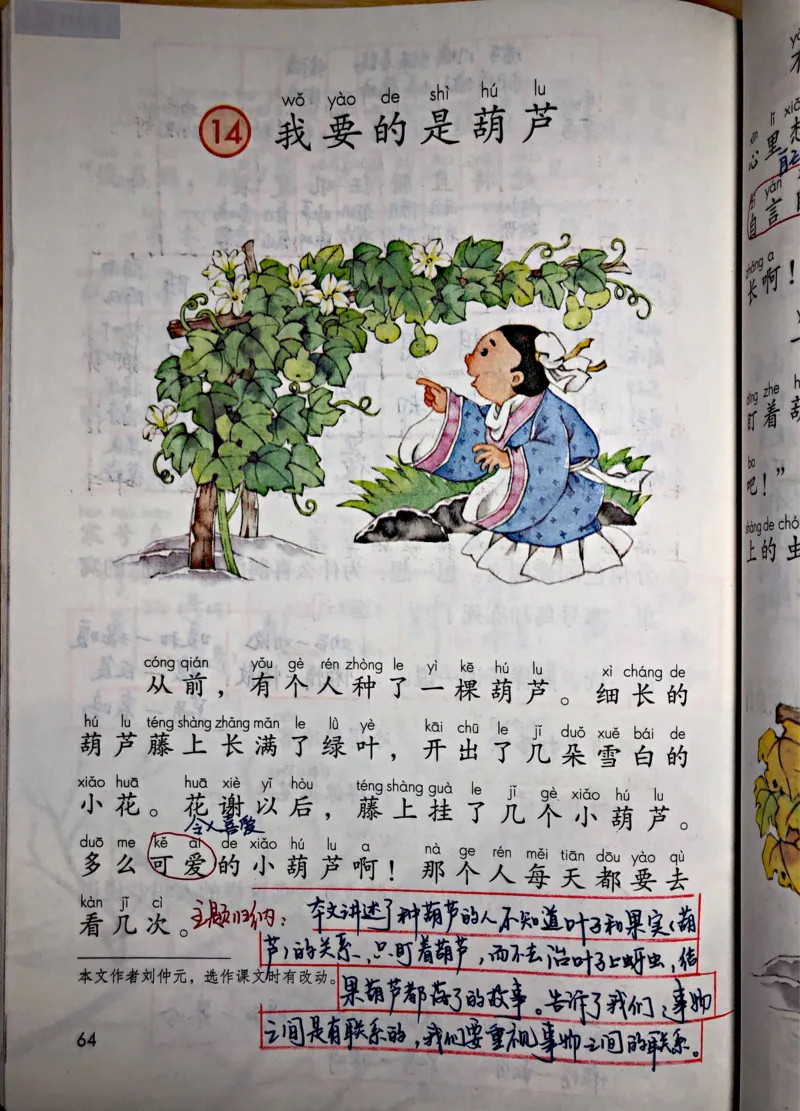 wǒ yào de shì hú lu
14 我要的是葫芦
cóng qián yǒu gè rén zhòng le yì kē hú lu xì cháng de
从前，有个人种了一棵葫芦。细长的
hú lu téng shàng zhǎng mǎn le lǜ yè kāi chū le jǐ duǒ xuě bái de
葫芦藤上长满了绿叶，开出了几朵雪白的
xiǎo huā huā xiè yǐ hòu téng shàng guà le jǐ gè xiǎo hú lu
小花。花谢以后，藤上挂了几个小葫芦。
令人喜爱
duō me kě ài de xiǎo hú lu a nà ge rén měi tiān dōu yào qù
多么可爱的小葫芦啊！那个人每天都要去
kàn jǐ cì
看几次。
主题归纳：本文讲述了种葫芦的人不知道叶子和果实（葫
芦）的关系，只盯着葫芦，而不去治叶子上蚜虫，结
果葫芦都落了的故事。告诉了我们，事物
之间是有联系的，我们要重视事物之间的联系。
本文作者刘仲元，选作课文时有改动。
64
xīn lǐ
心里
yán
自言
zhǎng a
长啊！
dīng zhe
盯着葫
ba
吧！”
shàng de chó
上的虫